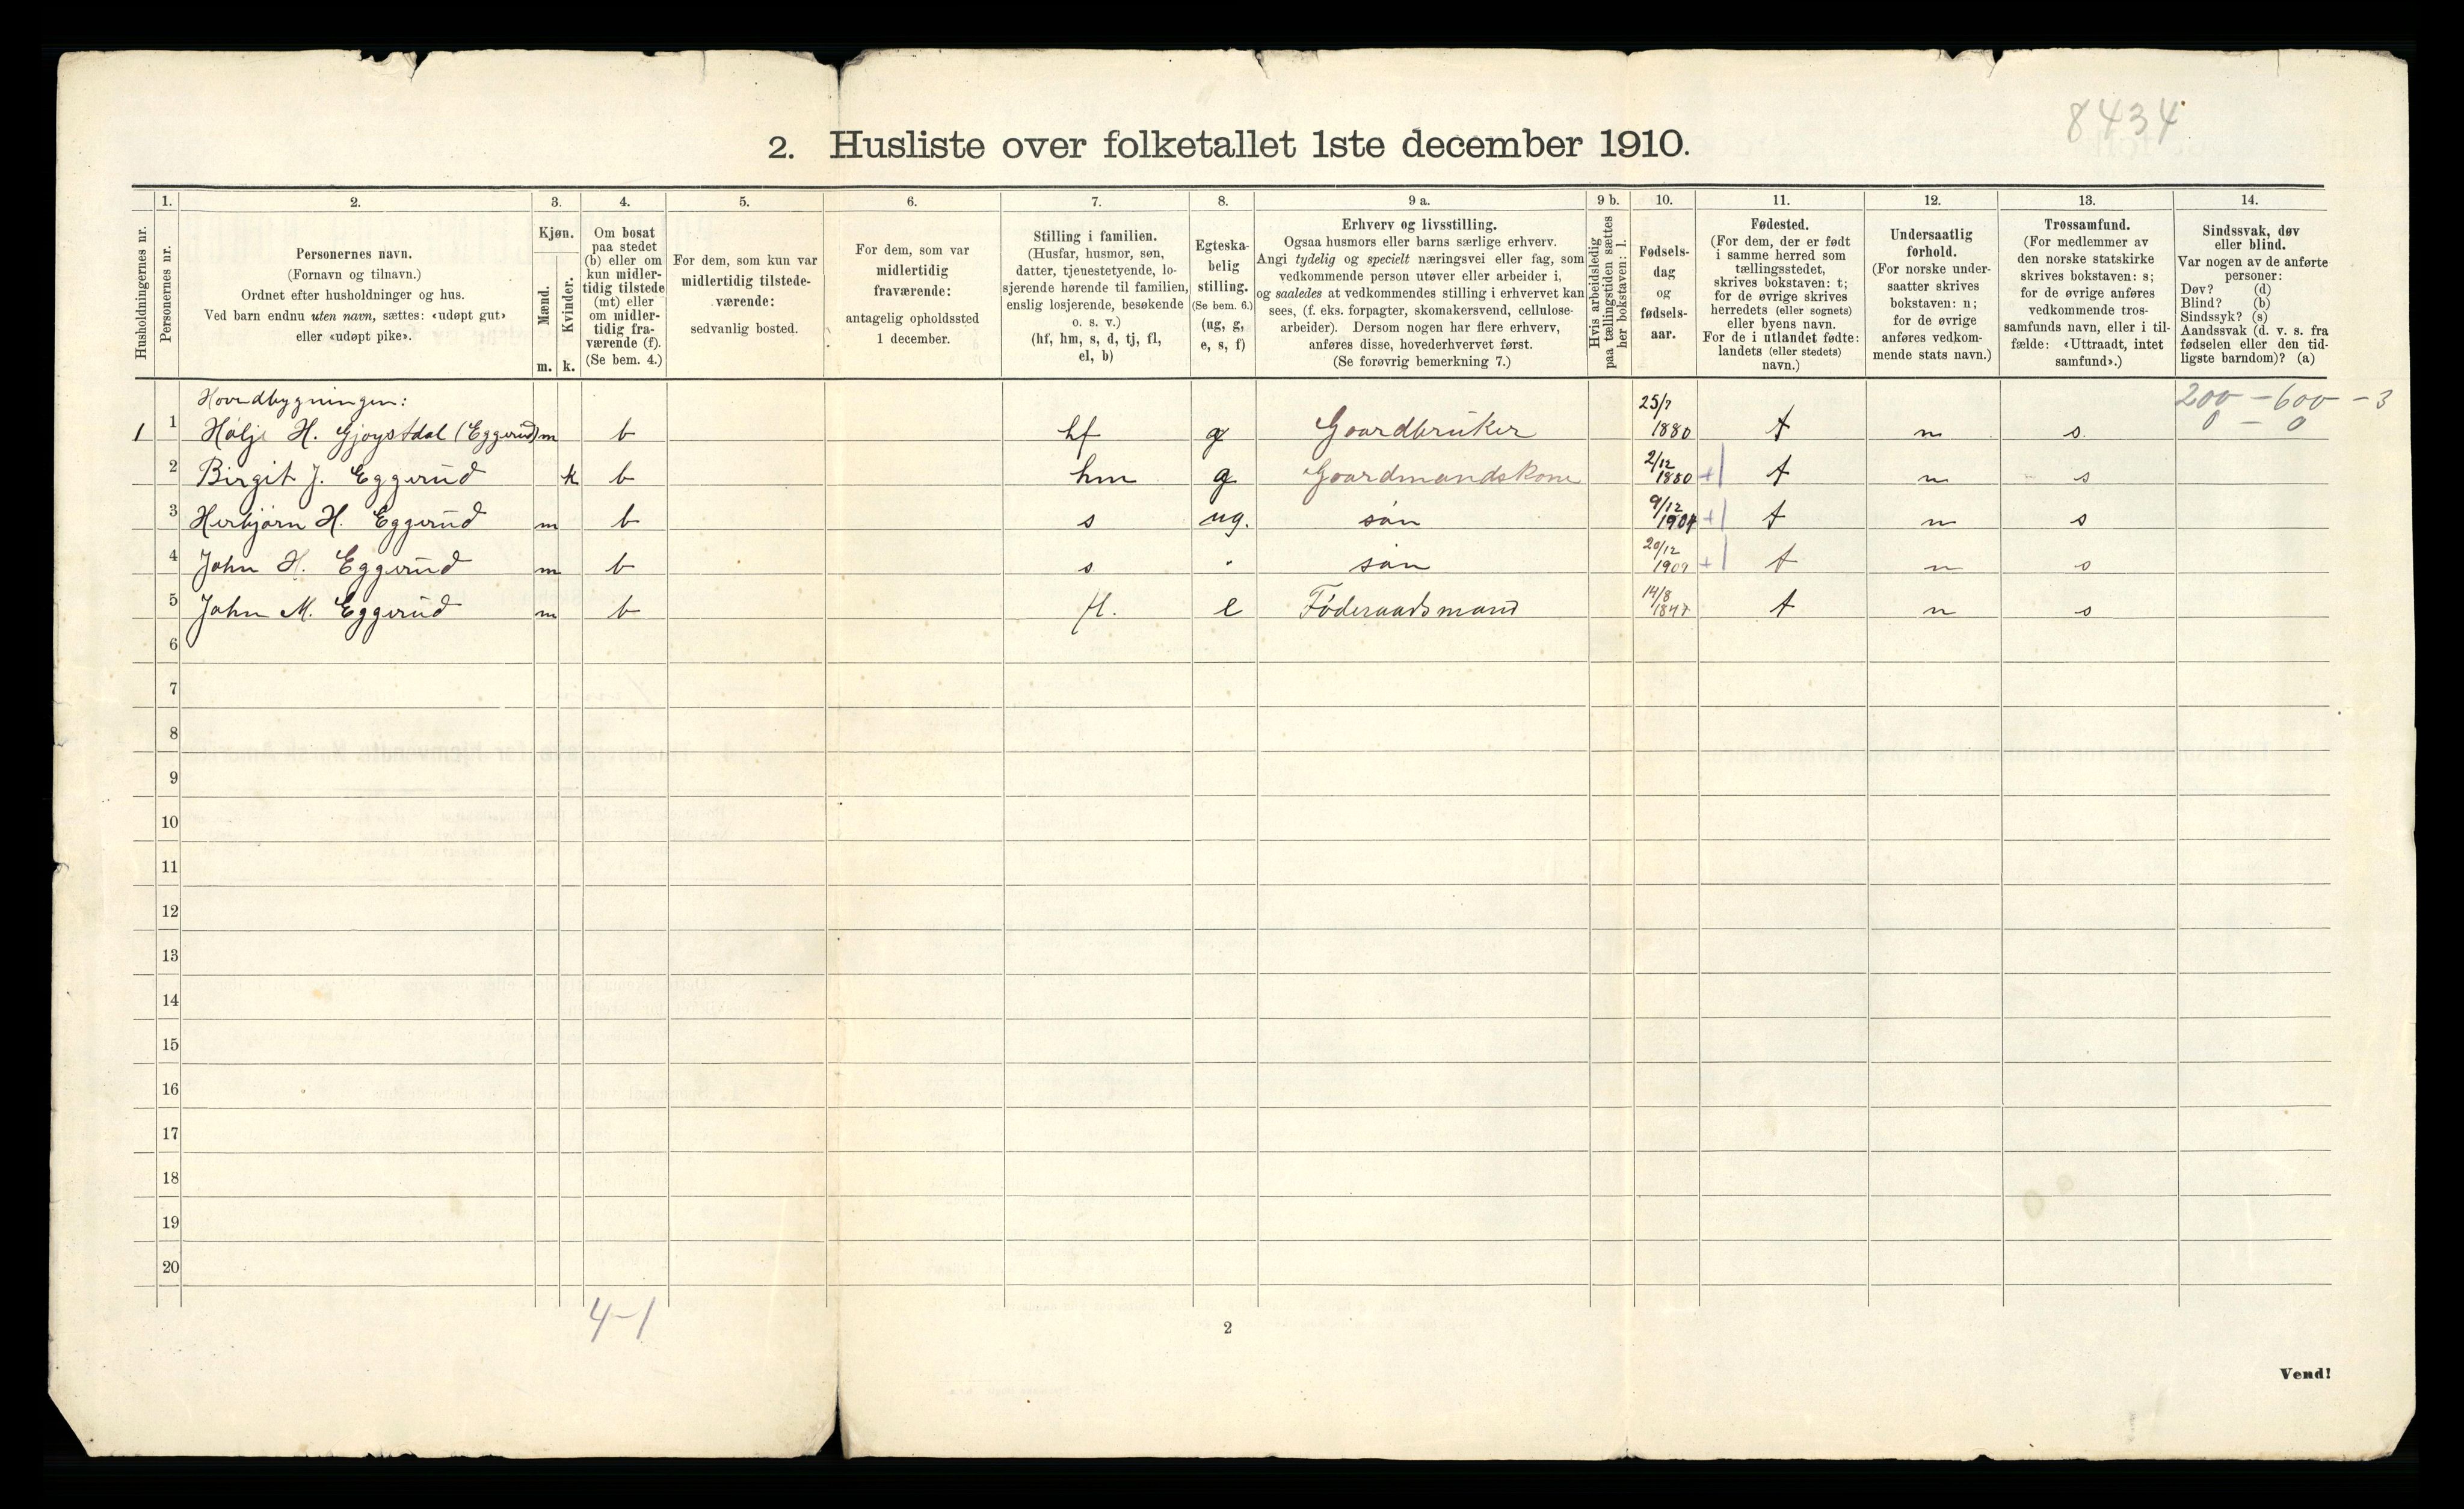 8434
2. Husliste over folketallet 1ste december 1910.
Husholdningernes nr.
1.
Personernes nr.
2.
Personernes navn.
(Fornavn og tilnavn.)
Ordnet efter husholdninger og hus.
Ved barn endnu uten navn, sættes: «udøpt gut»
eller «udøpt pike».
3.
Kjøn.
Mænd.
Kvinder.
m. k.
4.
Om bosat
paa stedet
(b) eller om
kun midler-
tidig tilstede
(mt) eller
om midler-
tidig fra-
værende (f).
(Se bem. 4.)
5.
For dem, som kun var
midlertidig tilstede-
værende:
sedvanlig bosted.
6.
For dem, som var
midlertidig
fraværende:
antagelig opholdssted
1 december.
7.
Stilling i familien.
(Husfar, husmor, søn,
datter, tjenestetyende, lo-
sjerende hørende til familien,
enslig losjerende, besøkende
o. s. v.)
(hf, hm, s, d, tj, fl,
el, b)
8.
Egteska-
belig
stilling.
(Se bem. 6.)
(ug, g,
e, s, f)
9 a.
Erhverv og livsstilling.
Ogsaa husmors eller barns særlige erhverv.
Angi tydelig og specielt næringsvei eller fag, som
vedkommende person utøver eller arbeider i,
og saaledes at vedkommendes stilling i erhvervet kan
sees, (f. eks. forpagter, skomakersvend, cellulose-
arbeider). Dersom nogen har flere erhverv,
anføres disse, hovederhvervet først.
(Se forøvrig bemerkning 7.)
9 b.
Hvis arbeidsledig
paa tællingstiden sættes
her bokstaven: l.
10.
Fødsels-
dag
og
fødsels-
aar.
11.
Fødested.
(For dem, der er født
i samme herred som
tællingsstedet,
skrives bokstaven: t;
for de øvrige skrives
herredets (eller sognets)
eller byens navn.
For de i utlandet fødte:
landets (eller stedets)
navn.)
12.
Undersaatlig
forhold.
(For norske under-
saatter skrives
bokstaven: n;
for de øvrige
anføres vedkom-
mende stats navn.)
13.
Trossamfund.
(For medlemmer av
den norske statskirke
skrives bokstaven: s;
for de øvrige anføres
vedkommende tros-
samfunds navn, eller i til-
fælde: «Uttraadt, intet
samfund».)
14.
Sindssvak, døv
eller blind.
Var nogen av de anførte
personer:
Døv? (d)
Blind? (b)
Sindssyk? (s)
Aandssvak (d. v. s. fra
fødselen eller den tid-
ligste barndom)? (a)
Hovedbygningen:
200 - 600 - 3
0 - 0
1 1 Halje H. Gjøystdal (Eggerud) m b hf g Gaardbruker 25/7 1880 t n s.
2 Birgit J. Eggerud k b hm g Gaardmandskone 2/12 1880 +1 t n s
3 Herbjørn H. Eggerud m b s ug. søn 9/12 1907 +1 t n s
4 John H. Eggerud m b s " søn 20/12 1909 +1 t n s
5 John M. Eggerud m b fl. e Føderaadsmand 14/8 1847 t n s
6
7
8
9
10
11
12
13
14
15
16
17
18
19
20
4-1
2
Vend!